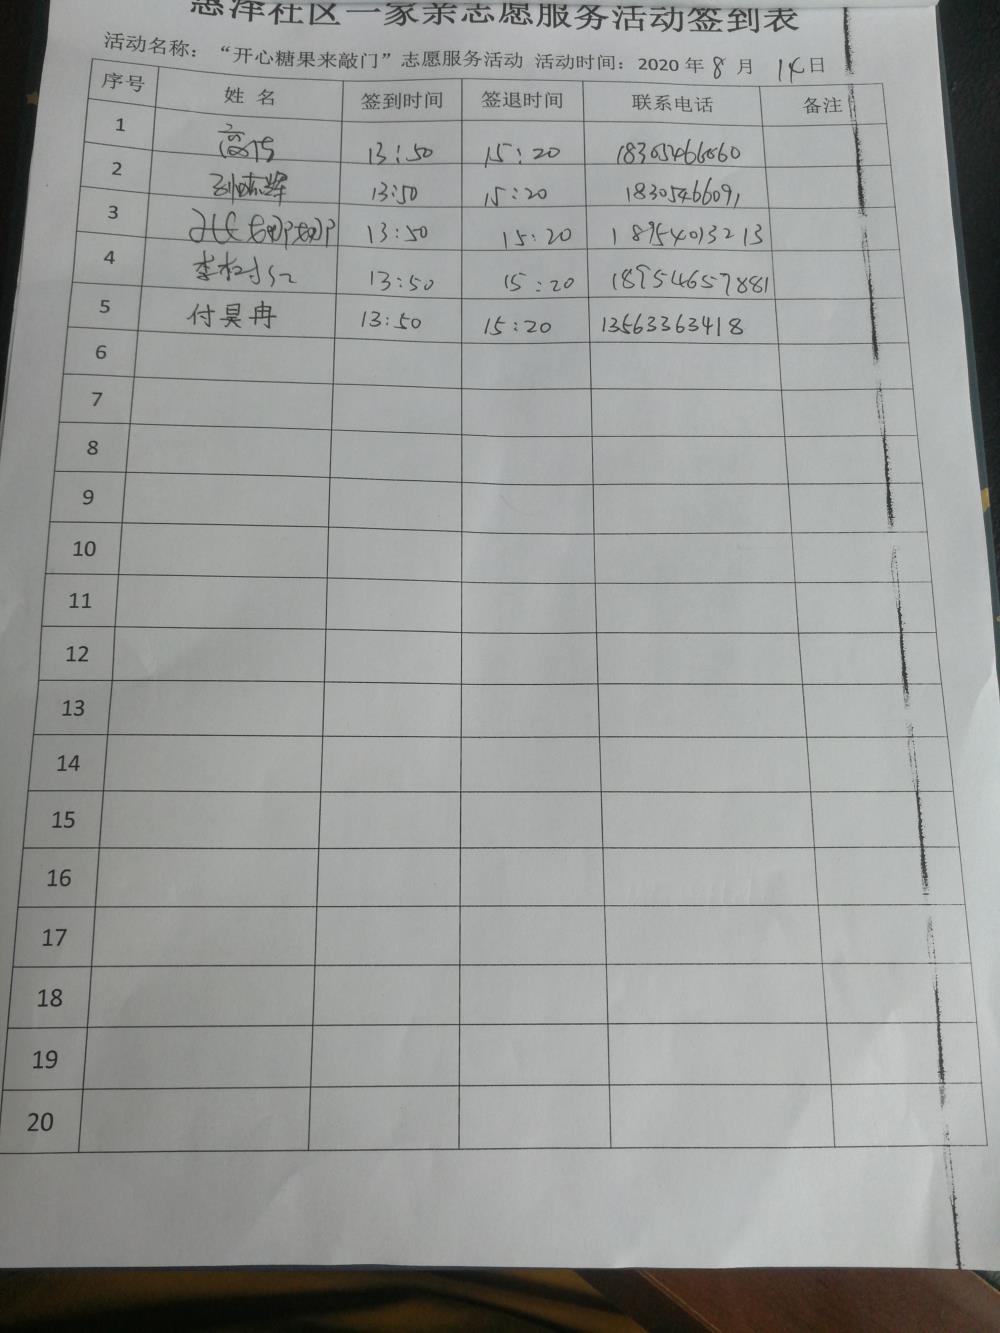 惠泽社区一家亲志愿服务活动签到表
活动名称：“开心糖果来敲门”志愿服务活动 活动时间：2020 年 8 月 14 日
序号 姓 名 签到时间 签退时间 联系电话 备注
1 13:50 15:20
2 13:50 15:20 18305466091
3 13:50 15:20 18954013213
4 13:50 15:20 18954657881
5 付昊冉 13:50 15:20 13563363418
6
7
8
9
10
11
12
13
14
15
16
17
18
19
20